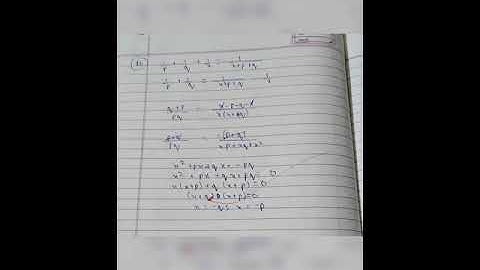 1/p + 1/q + 1/x = 1/(x+p+q)
1/p + 1/q = 1/(x+p+q) - 1/x
(q+p)/pq =
(p+q)/pq = -(p+q)/(xp+xq+x²)
x² + px + qx = -pq
x² + px + qx + pq = 0
x(x+p) + q(x+p) = 0
(x+q) (x+p) = 0
x = -q, x = -p